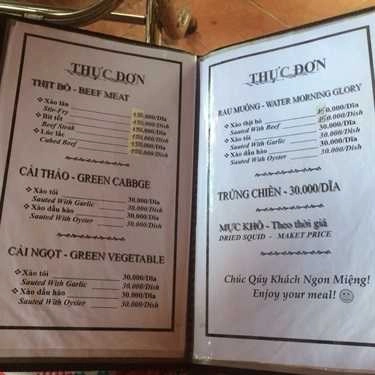 THỰC ĐƠN
THỊT BÒ - BEEF MEAT
❖ Xào lăn 150.000/Dĩa
Stir-Fry 150.000/Dish
❖ Bít tết 150.000/Dĩa
Beef Steak 150.000/Dish
❖ Lúc lắc 150.000/Dĩa
Cubed Beef 150.000/Dish
CẢI THẢO - GREEN CABBGE
❖ Xào tỏi 30.000/Dĩa
Sauted With Garlic 30.000/Dish
❖ Xào dầu hào 30.000/Dĩa
Sauted With Oyster 30.000/Dish
CẢI NGỌT - GREEN VEGETABLE
❖ Xào tỏi 30.000/Dĩa
Sauted With Garlic 30.000/Dish
❖ Xào dầu hào 30.000/Dĩa
Sauted With Oyster 30.000/Dish
THỰC ĐƠN
RAU MUỐNG - WATER MORNING GLORY
❖ Xào thịt bò .000/Dĩa
Sauted With Beef .000/Dish
❖ Xào tỏi 30.000/Dĩa
Sauted With Garlic 30.000/Dish
❖ Xào dầu hào 30.000/Dĩa
Sauted With Oyster 30.000/Dish
TRỨNG CHIÊN - 30.000/DĨA
MỰC KHÔ - Theo thời giá
DRIED SQUID - MAKET PRICE
Chúc Qúy Khách Ngon Miệng!
Enjoy your meal!